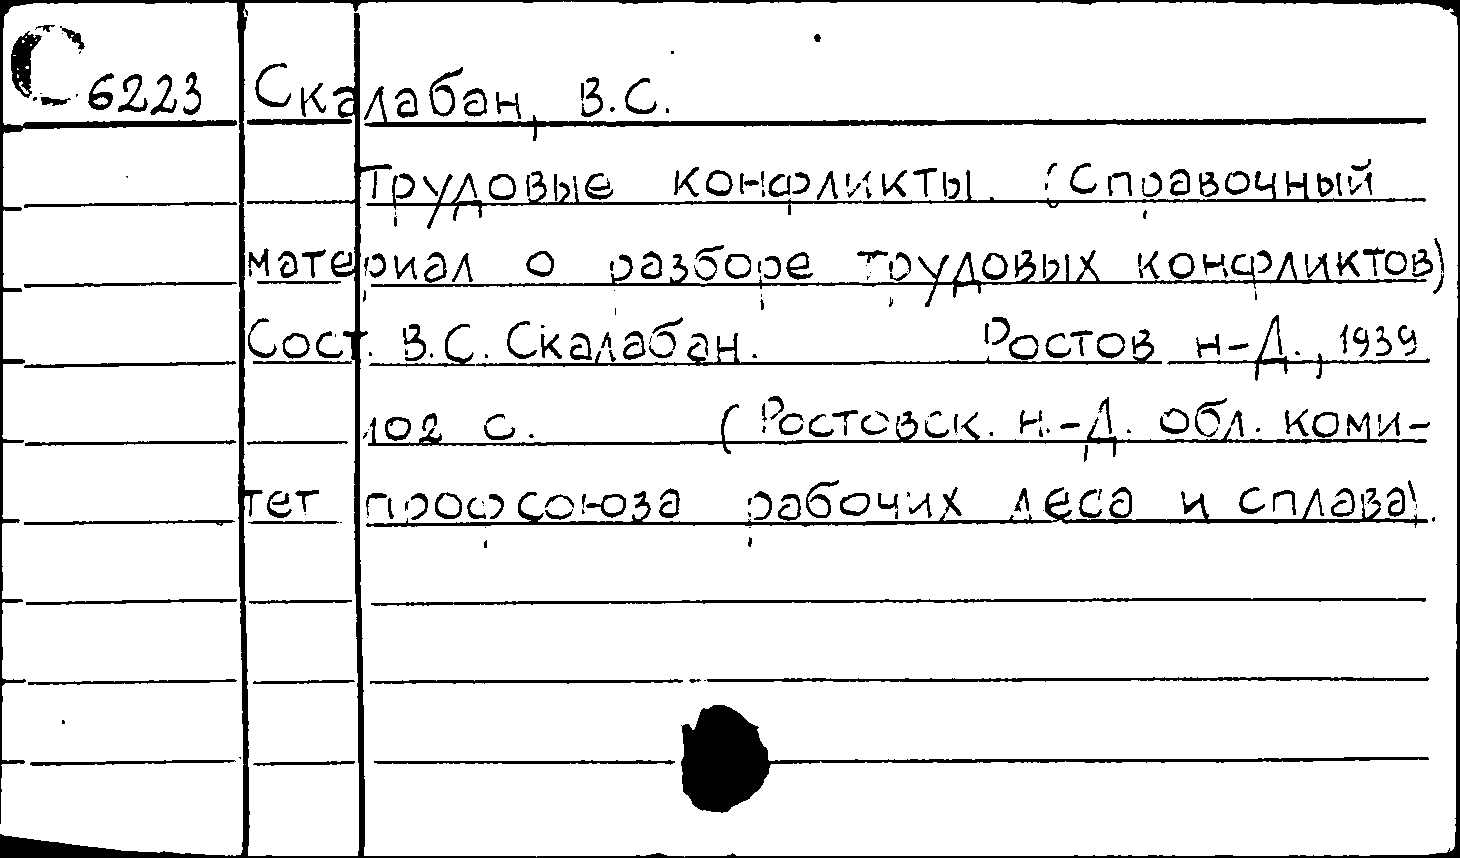 С 6223 Скалабан, В.С.
Трудовые конфликты. (Справочный
материал о разборе трудовых конфликтов)
Сост. В.С. Скалабан. Ростов н-Д., 1939
102 с. (Ростовск. н.-Д. обл. коми-
тет профсоюза рабочих леса и сплава).